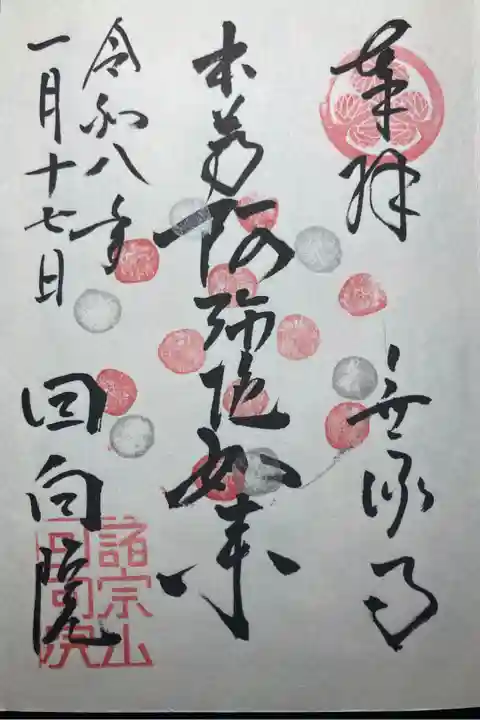 奉拝
無縁寺
本尊阿弥陀如来
令和八年
一月十七日
回向院
諸宗山
回向院